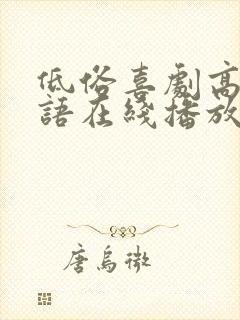 低俗喜劇高
語在綫播放
唐烏微